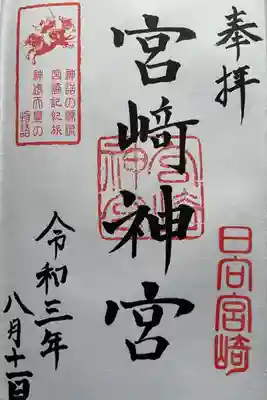 奉拝
日向宮崎
宮崎神宮
神話の源流
宮崎記紀旅
神武天皇の
物語
令和三年
八月十一日